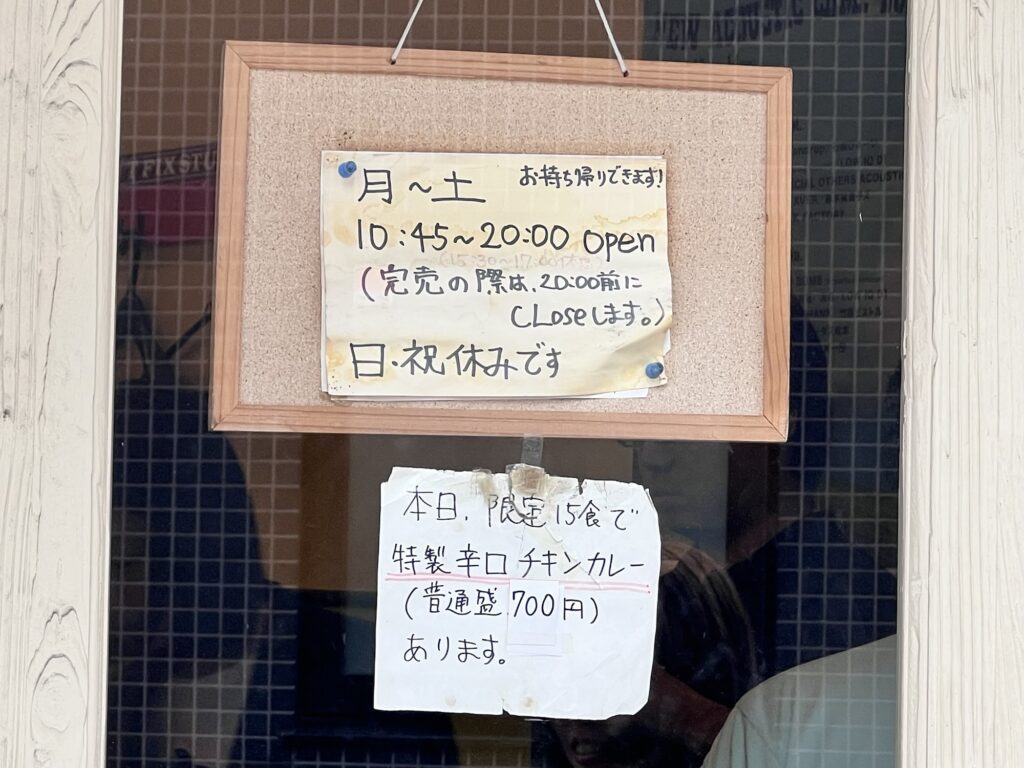 お持ち帰りできます!
月~土
10:45~20:00 open
(15:30~17:00休み)
(完売の際は、20:00前に
CLoseします。)
日・祝休みです
本日、限定15食で
特製辛口チキンカレー
(普通盛700円)
あります。
TFIXSTU